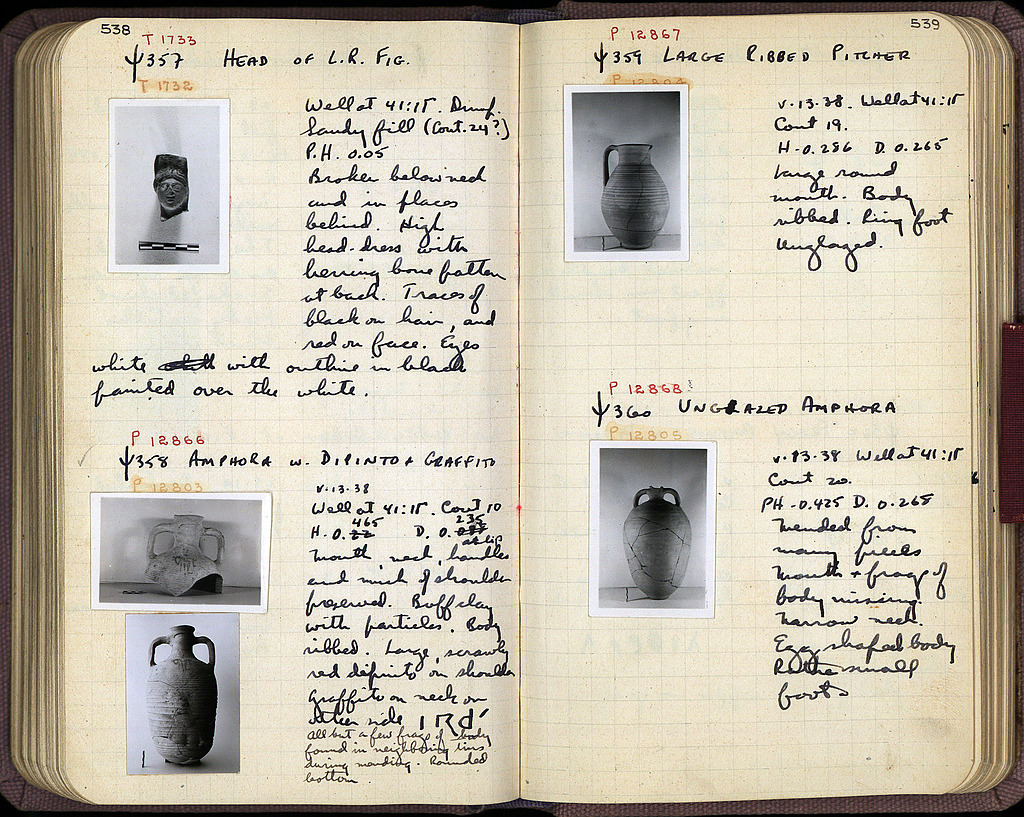 538
T 1733
Ψ357 HEAD OF L.R. FIG.
T 1732
Well at 41:ΙΓ. Dump.
Sandy fill (Cont. 24?)
P.H. 0.05
Broken below neck
and in places
behind. High
head-dress with
herring bone pattern
at back. Traces of
black on hair, and
red on face. Eyes
white with outline in black
painted over the white.
P 12866
Ψ358 AMPHORA W. DIPINTO + GRAFFITO
P 12803
V-13-38
Well at 41:ΙΓ. Cont 10
H. 0.465 D. 0.235
at lip
Mouth, neck, handles
and much of shoulder
preserved. Buff clay
with particles. Body
ribbed. Large, scrawly
red dipinto on shoulder
Graffito on neck on
other side
All but a few frags of body
found in neighboring tins
during mending. Rounded
bottom.
539
P 12867
Ψ359 LARGE RIBBED PITCHER
P 12804
V-13-38. Well at 41:ΙΓ
Cont 19.
H-0.286 D. 0.265
Large round
mouth. Body
ribbed. Ring foot
Unglazed.
P 12868
Ψ360 UNGLAZED AMPHORA
P 12805
V-13-38 Well at 41:ΙΓ
Cont 20.
PH-0.425 D. 0.268
Mended from
many pieces
Mouth + frags of
body missing.
Narrow neck.
Egg shaped body
Rather small
foot